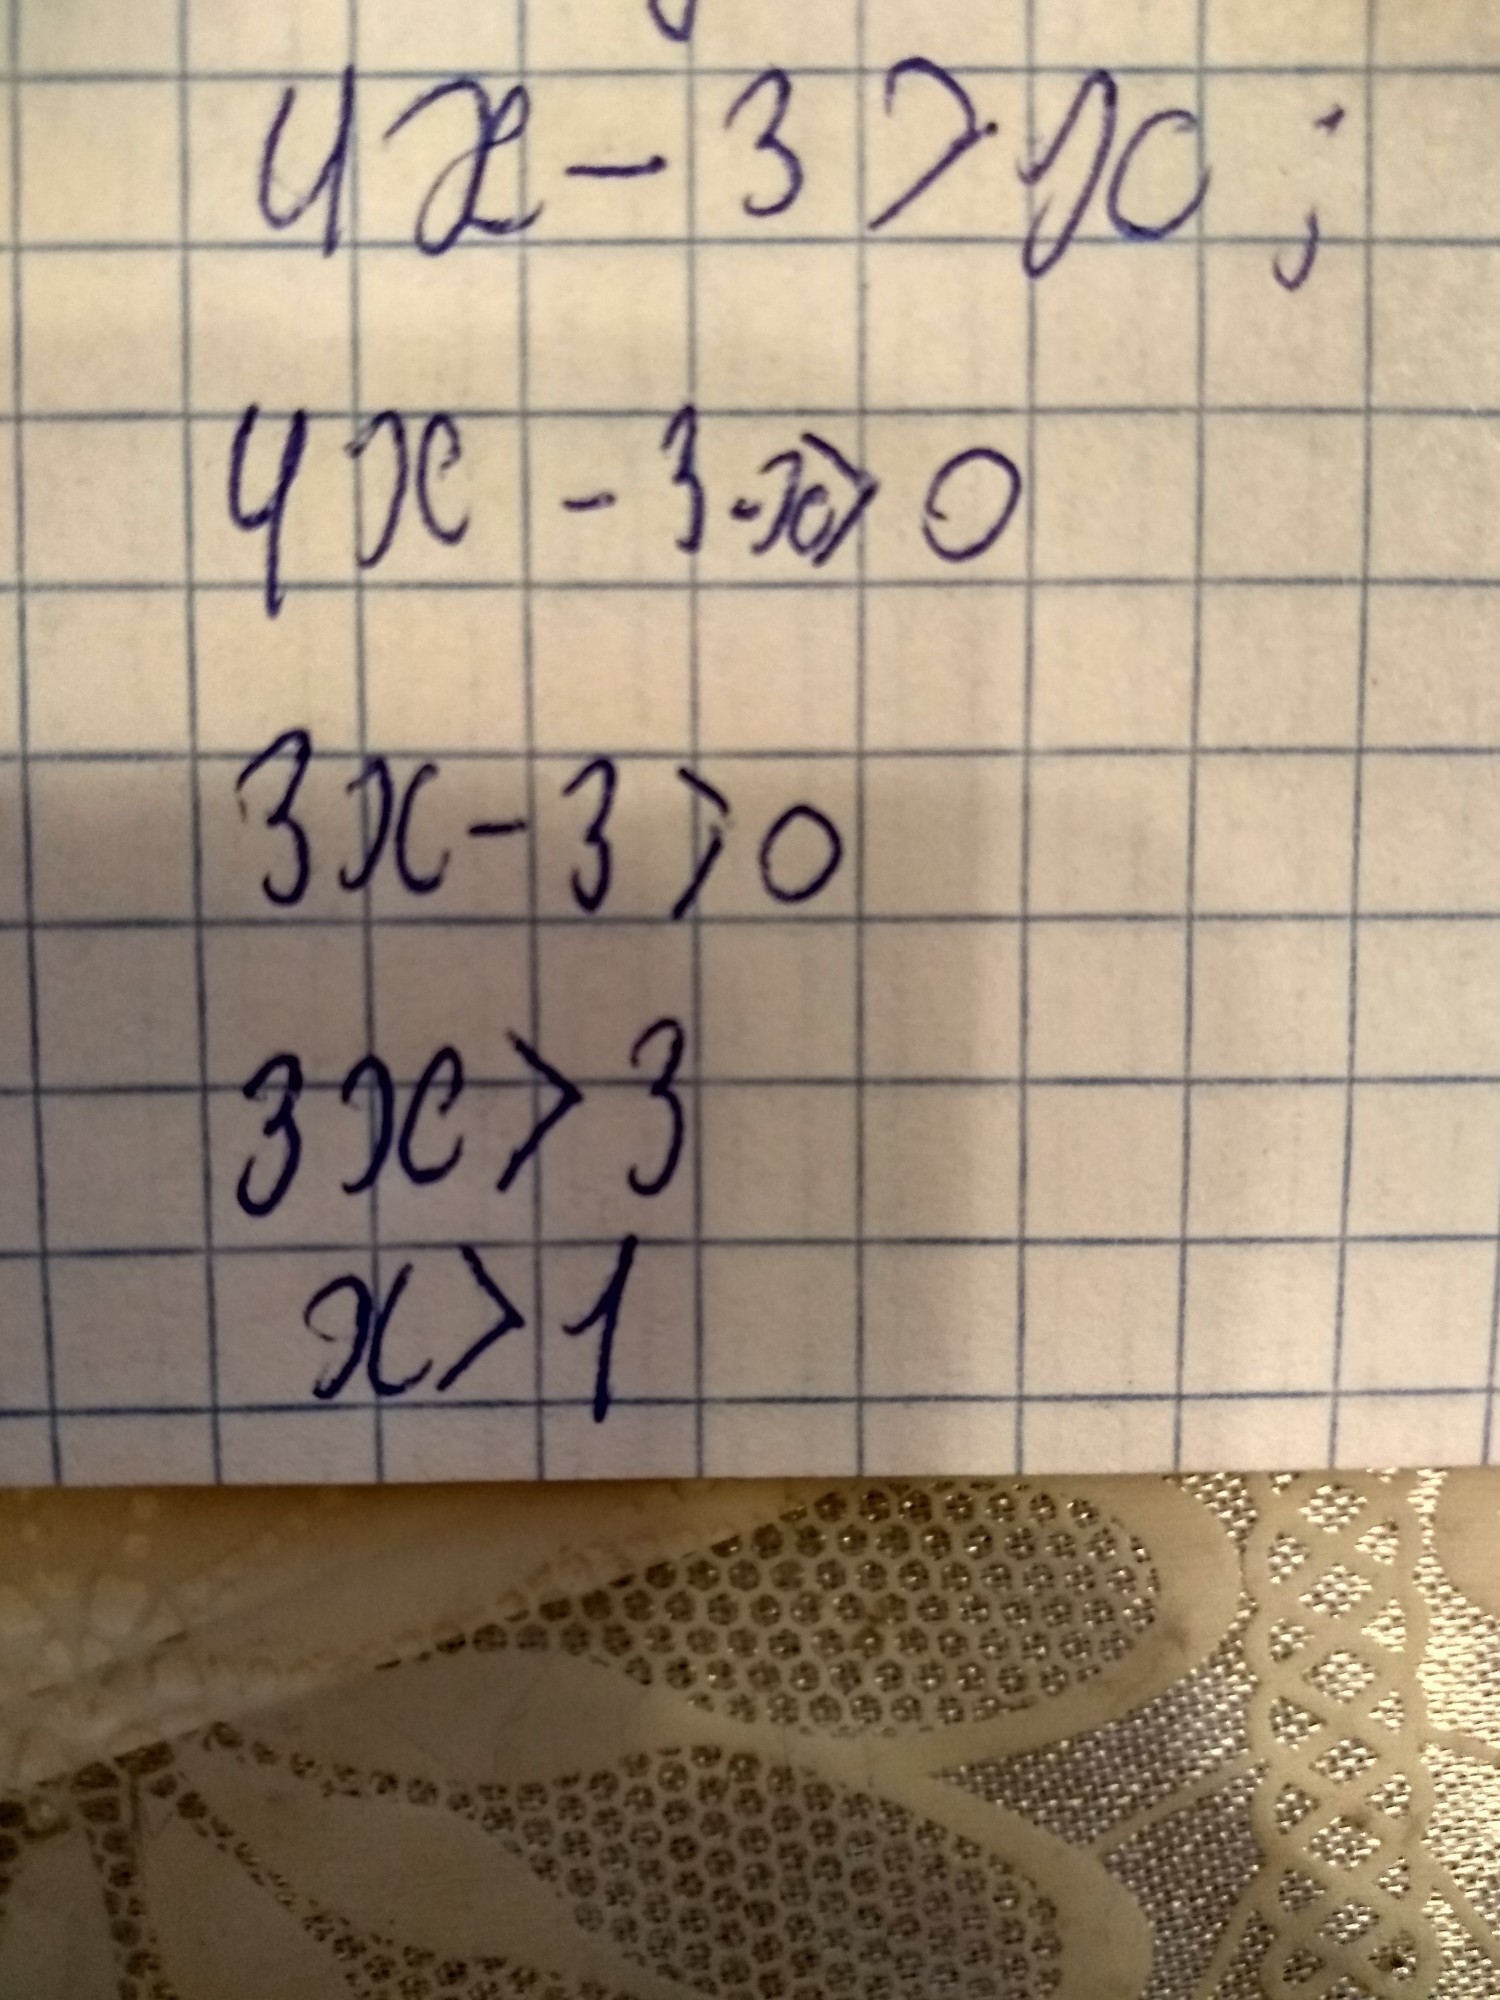 4x - 3 > x ;
4x - 3 - x > 0
3x - 3 > 0
3x > 3
x > 1